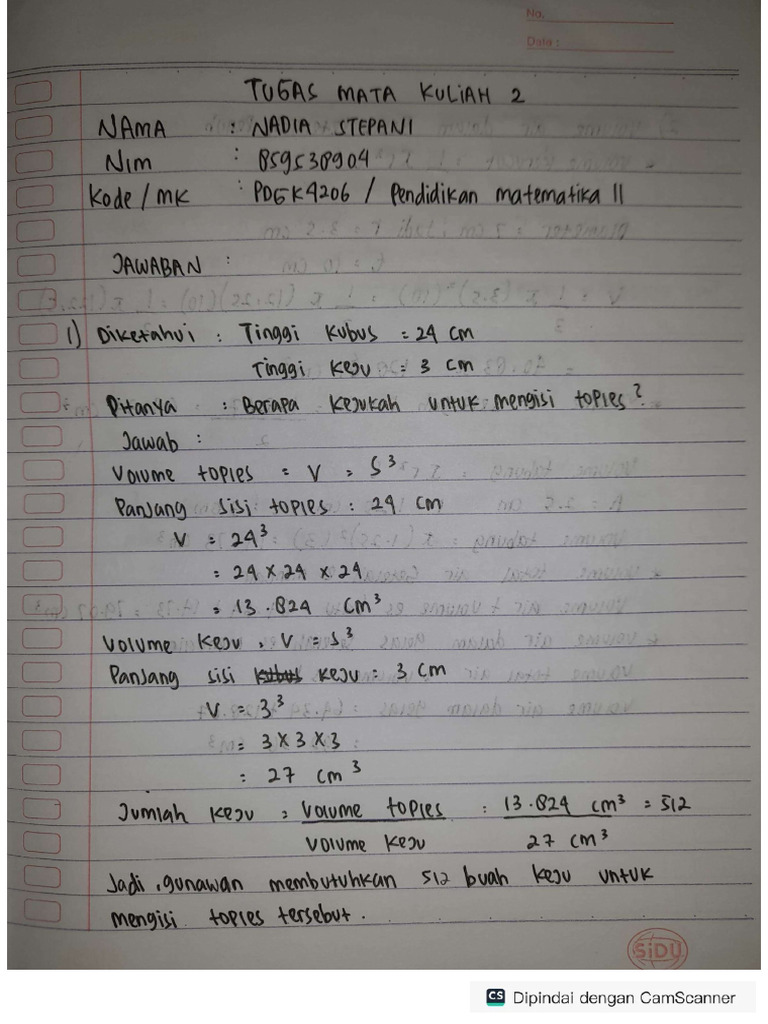 No.
Date :
TUGAS MATA KULIAH 2
NAMA : NADIA STEPANI
NIM : 859538904
Kode / MK : PDGK4206 / Pendidikan matematika II
JAWABAN :
1) Diketahui : Tinggi Kubus = 24 cm
Tinggi keju = 3 cm
Ditanya : Berapa kejukah untuk mengisi toples?
Jawab :
Volume toples = V = S³
Panjang sisi toples : 24 cm
V = 24³
= 24 x 24 x 24
= 13.824 cm³
Volume keju, V = S³
Panjang sisi keju : 3 cm
V = 3³
= 3 x 3 x 3
= 27 cm³
Jumlah keju = Volume toples : 13.824 cm³ = 512
Volume keju 27 cm³
Jadi, gunawan membutuhkan 512 buah keju untuk
mengisi toples tersebut.
SiDU
CS Dipindai dengan CamScanner